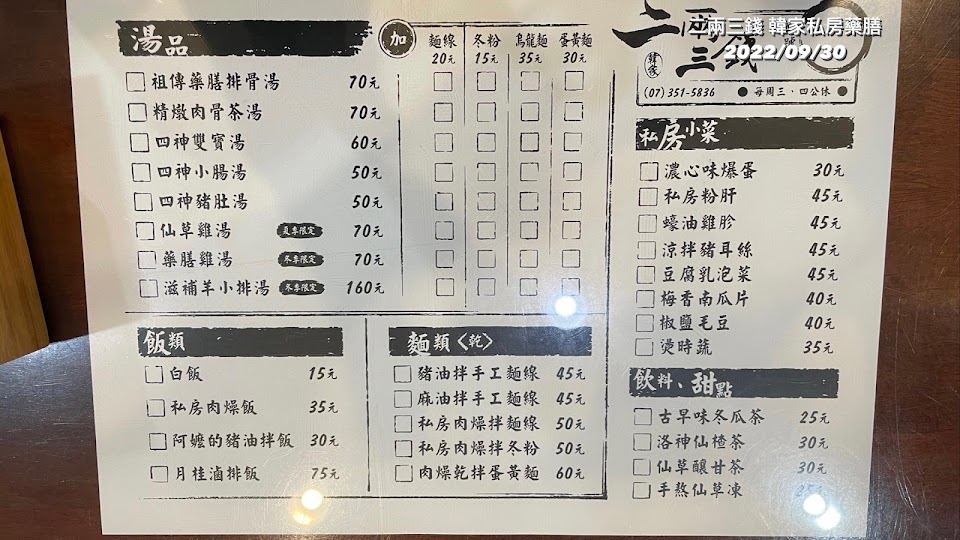 湯品
加 麵線 冬粉 烏龍麵 蛋黃麵
20元 15元 35元 30元
祖傳藥膳排骨湯 70元
精燉肉骨茶湯 70元
四神雙寶湯 60元
四神小腸湯 50元
四神豬肚湯 50元
仙草雞湯 夏季限定 70元
藥膳雞湯 冬季限定 70元
滋補羊小排湯 冬季限定 160元
飯類
白飯 15元
私房肉燥飯 35元
阿嬤的豬油拌飯 30元
月桂滷排飯 75元
麵類〈乾〉
豬油拌手工麵線 45元
麻油拌手工麵線 45元
私房肉燥拌麵線 50元
私房肉燥拌冬粉 50元
肉燥乾拌蛋黃麵 60元
二兩三錢
韓家
二兩三錢 韓家私房藥膳
2022/09/30
(07)351-5836 ●每周三、四公休●
私房小菜
濃心味爆蛋 30元
私房粉肝 45元
蠔油雞胗 45元
涼拌豬耳絲 45元
豆腐乳泡菜 45元
梅香南瓜片 40元
椒鹽毛豆 40元
燙時蔬 35元
飲料、甜點
古早味冬瓜茶 25元
洛神仙楂茶 30元
仙草釀甘茶 30元
手熬仙草凍